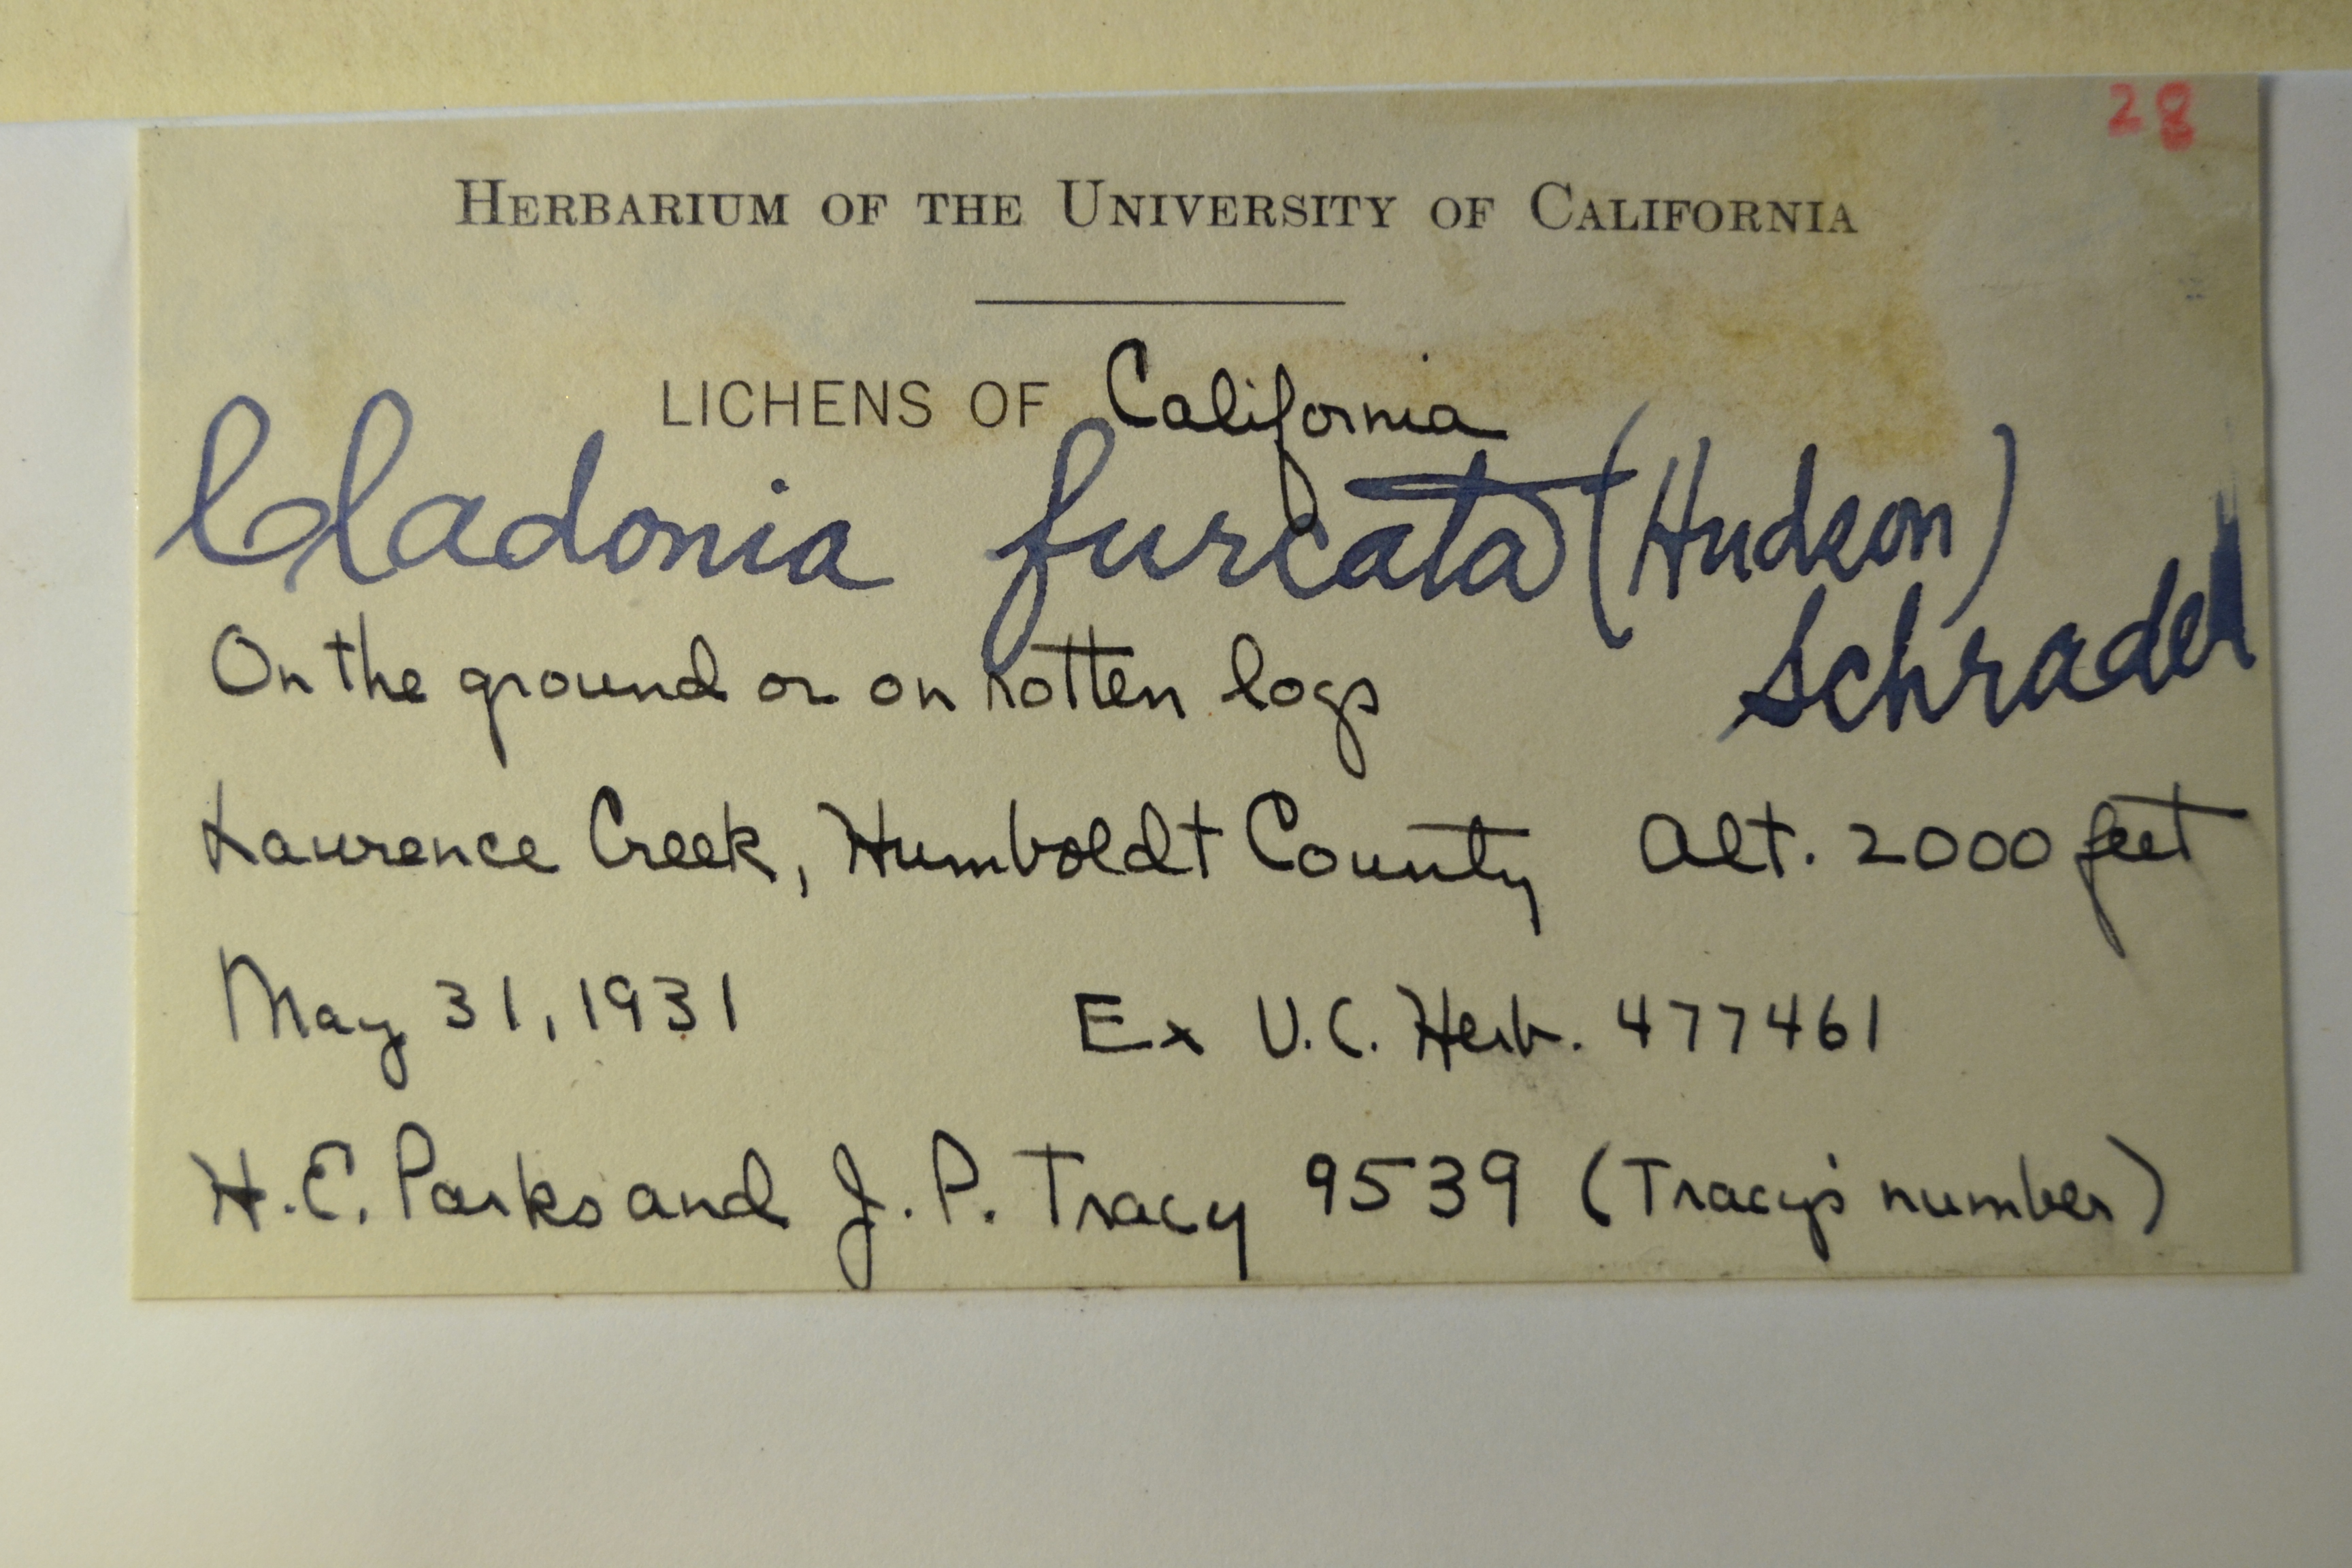 28
HERBARIUM OF THE UNIVERSITY OF CALIFORNIA
LICHENS OF California
Cladonia furcata (Hudson)
Schrader
On the ground or on rotten logs
Lawrence Creek, Humboldt County Alt. 2000 feet
May 31, 1931 Ex U.C. Herb. 477461
H.E. Parks and J.P. Tracy 9539 (Tracy's number)